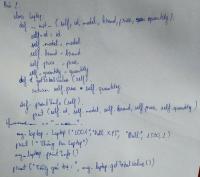 Bài 2
class Laptop:
def __init__(self, id, model, brand, price, quantity):
self.id = id
self.model = model
self.brand = brand
self.price = price
self.quantity = quantity
def getTotalValue(self):
return self.price * self.quantity
def printInfo(self):
print(self.id, self.model, self.brand, self.price, self.quantity)
my_laptop = Laptop("L001", "Dell XPS", "Dell", 1500, 2)
print("Thông tin Laptop")
my_laptop.printInfo()
print("Tổng giá trị:", my_laptop.getTotalValue())